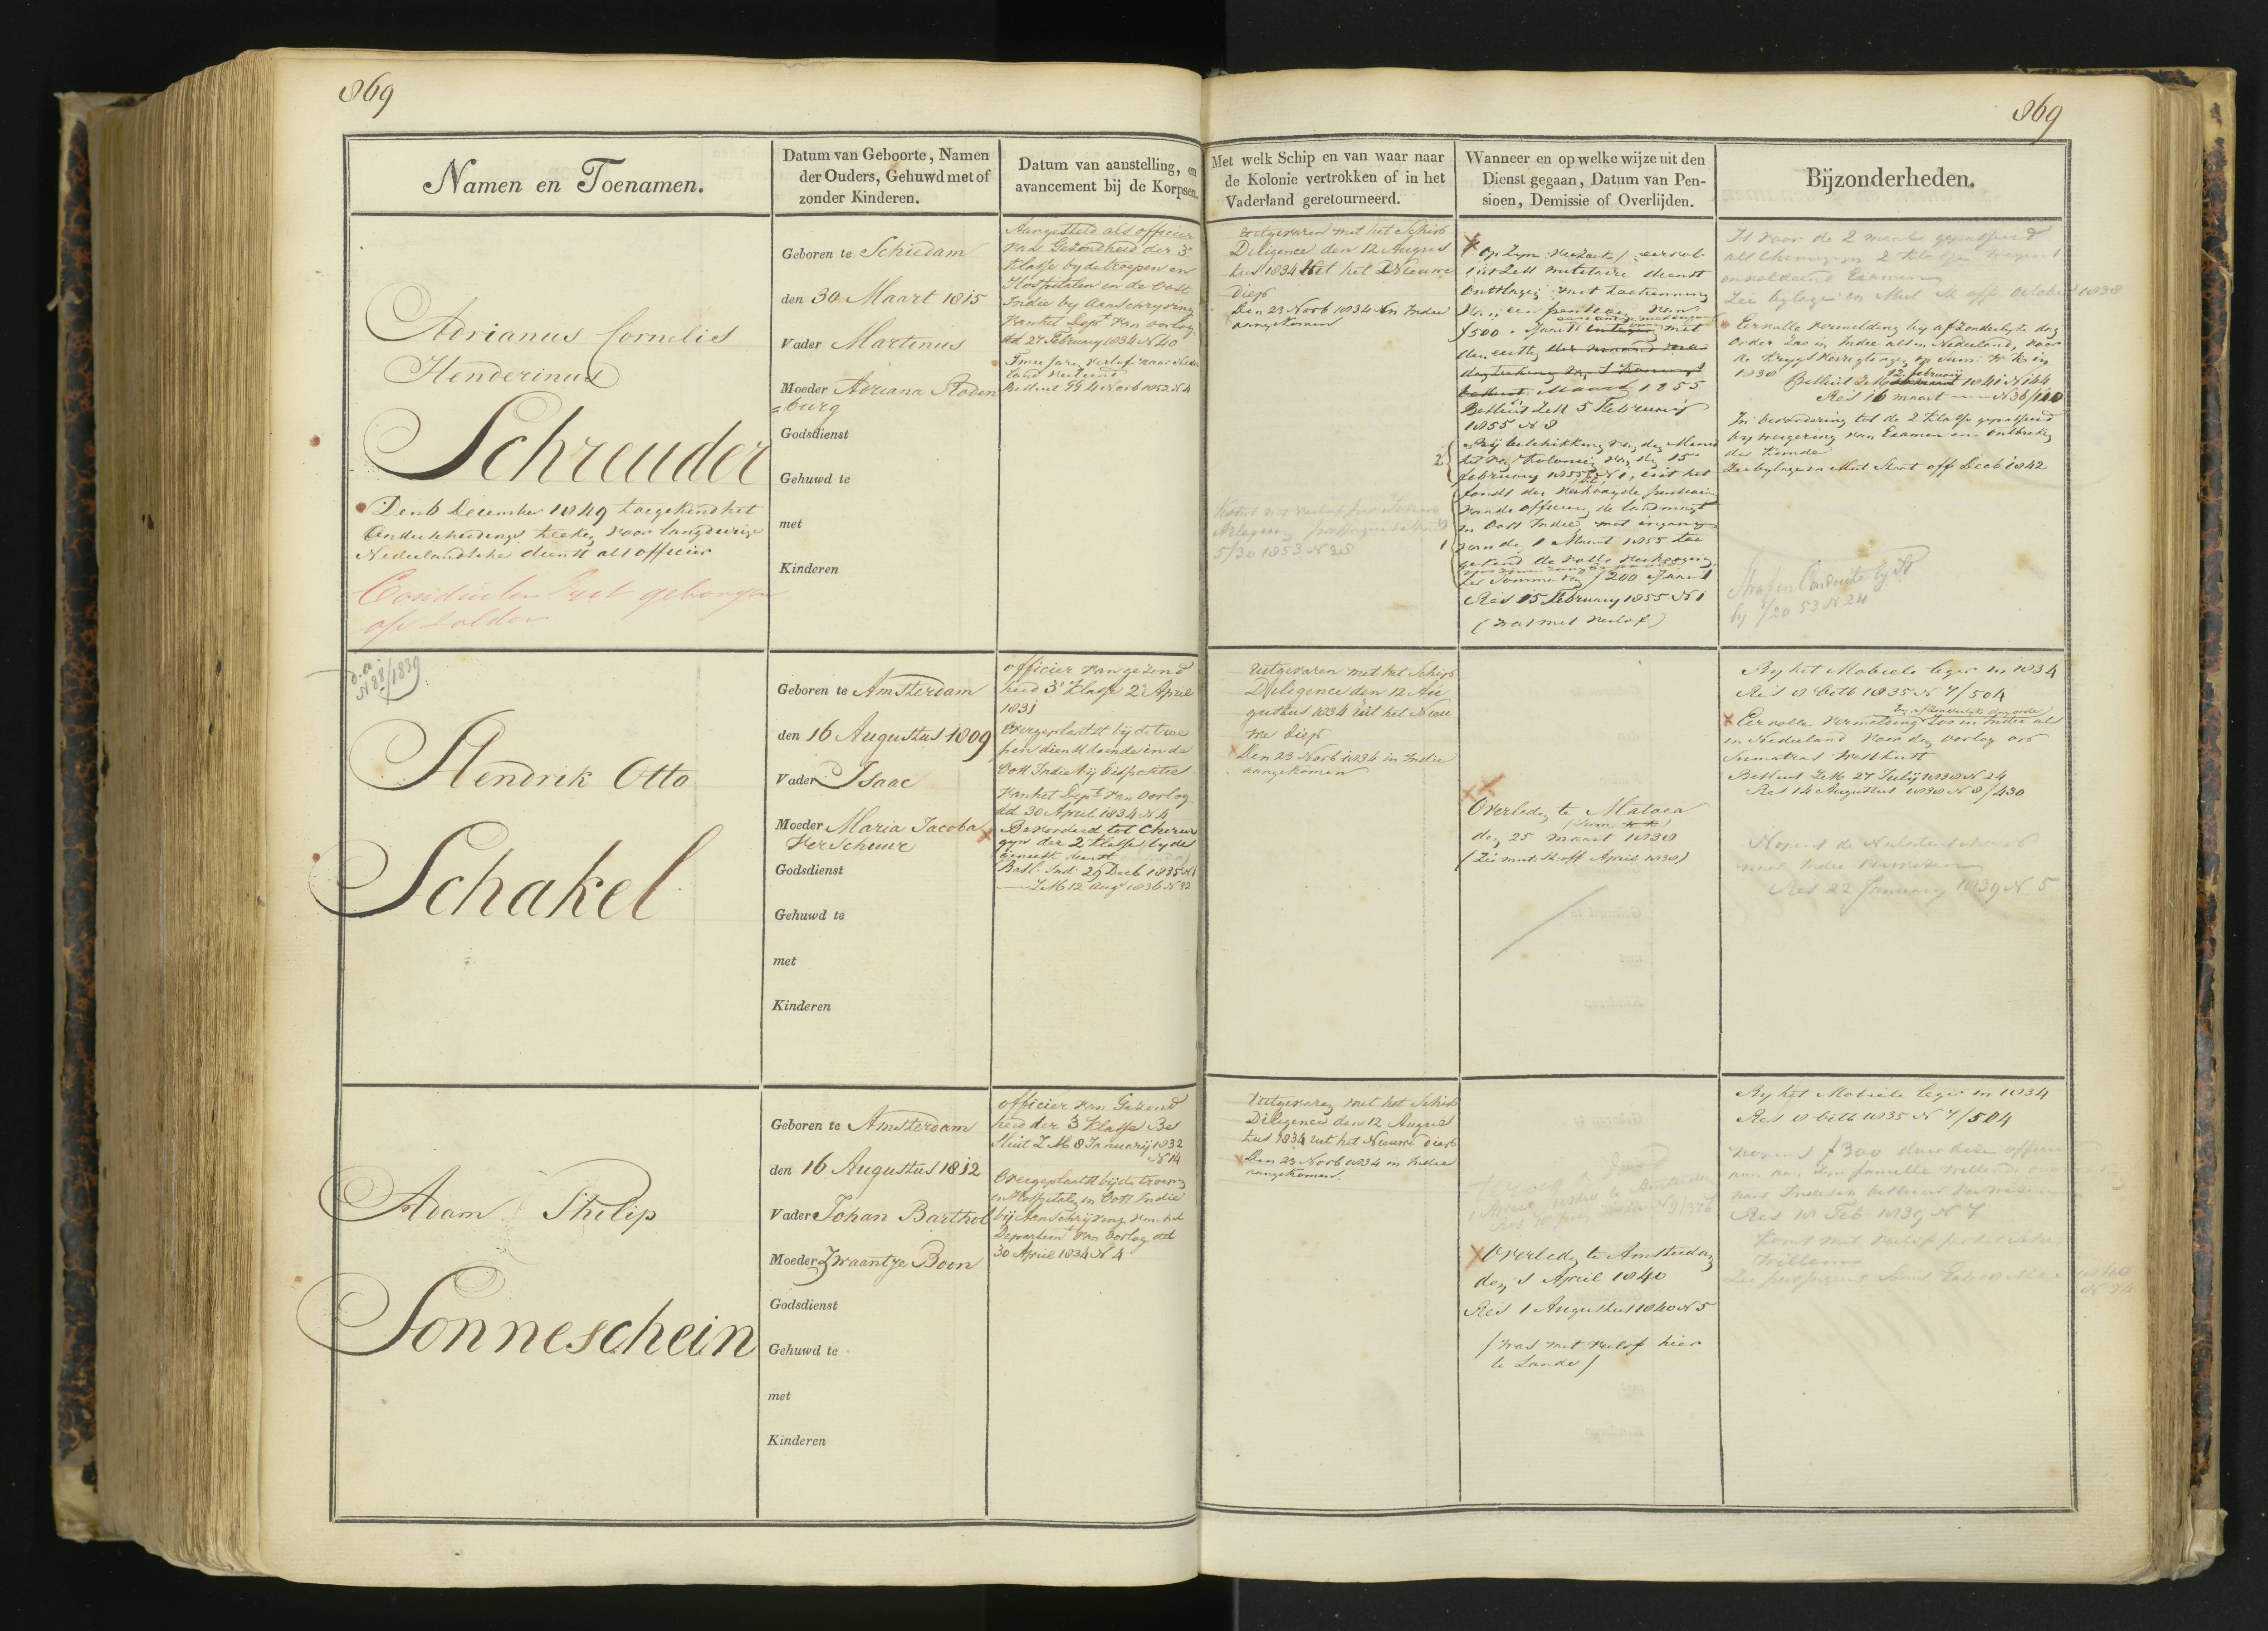 869
869
Namen en Toenamen.
Datum van Geboorte, Namen
der Ouders, Gehuwd met of
zonder Kinderen.
Datum van aanstelling, en
avancement bij de Korpsen.
Met welk Schip en van waar naar
de Kolonie vertrokken of in het
Vaderland geretourneerd.
Wanneer en op welke wijze uit den
Dienst gegaan, Datum van Pen-
sioen, Demissie of Overlijden.
Bijzonderheden.
Adrianus Cornelis
Henderinus
Schreuder
Den 6 December 1849 toegekend het
Onderscheidings teeken voor langdurige
Nederlandsche dienst als officier
Conduite Lyst geborgen
op Zolder
Geboren te Schiedam
den 30 Maart 1815
Vader Martinus
Moeder Adriana Roden
=burg
Godsdienst
Gehuwd te
met
Kinderen
Aangesteld als officier
van Gezondheid der 3e
klasse by de troepen en
Hospitalen in de Oost
Indie by Aanschryving
van het Dept van Oorlog
dd 27 February 1834 N 40
Twee Jaren verlof naar Neder
land verleend
Besluit GG 4 Novb 1852 N 4
Uitgevaren met het Schip
Diligence den 12 Augus
tus 1834 Uit het Nieuwe
Diep
Den 23 Novb 1834 in Indie
aangekomen
5/30 1853 N 28
Op zyn verzoek eervol
uit Zell militaire dienst
Ontslagen met toekenning
van een pensioen van
f 500 . Jaars met
den eersten
Maart 1855
Besluit Zell 5 February
1855 N 8
2
Bij beschikking van den Minis
ter van Kolonien van den 15
february 1855 N 1, uit het
fonds der verhoogde pensioenen
van de officieren der landmagt
in Oost Indie met ingang
van den 1 Maart 1855 toe
gekend de volle verhooging
ter Somma van f 200 Jaars
1
Res 15 February 1855 N 1
(was met verlof)
Is voor de 2 maal gepasseerd
als Chirurgyn 2 klasse wegens
onvoldoend Examen
Zie bylage in Mut St off October 1838
Eervolle vermelding by afzonderlyke dag
order zoo in Indie als in Nederland, voor
de Krygsverrigtingen op Sum: W K in
1838
12 february
Besluit ZM 1841 N 144
Res 16 maart N 36/110
In bevordering tot de 2 klasse gepasseerd
by weigering van Examen en ontbreking
der Kunde
Zie bylage in Mut Staat off Decb 1842
by 1/20 53 N 24
d.a.
N 88/1839
Hendrik Otto
Schakel
Geboren te Amsterdam
den 16 Augustus 1809
Vader Isaac
Moeder Maria Jacoba
Verschuur
Godsdienst
Gehuwd te
met
Kinderen
officier van gezond
heid 3e klasse 2 April
1831
Overgeplaatst bij de troe
pen dienst doende in de
Oost Indie bij dispositie
van het Dept van Oorlog
dd 30 April 1834 N 4
Bevorderd tot Chirur
gyn der 2 klasse by de
geneesk dienst
Besl: Ind: 29 Decb 1835 N 1
ZM 12 Aug 1836 N 92
Uitgevaren met het Schip
Diligence den 12 Au
gustus 1834 uit het Nieu
we Diep
Den 23 Novb 1834 in Indie
aangekomen
Overleden te Mataea
den 25 maart 1838
(Zie mut: St: off April 1838)
By het Mobiele leger in 1834
Res 8 Octb 1835 N 7/504
by afzonderlyke dagorde
Eervolle vermelding zoo in Indie als
in Nederland voor den oorlog op
Sumatras Westkust
Besluit ZM 27 July 1838 N 24
Res 14 Augustus 1838 N 8/430
Res 22 January 1839 N 5
Adam Philip
Sonneschein
Geboren te Amsterdam
den 16 Augustus 1812
Vader Johan Barthol
Moeder Zwaantje Boon
Godsdienst
Gehuwd te
met
Kinderen
officier van Gezond
heid der 3 klasse Bes
sluit ZM 8 Januarij 1832
N 14
Overgeplaatst bij de troepen
en Hospitalen in Oost Indie
bij Aanschryving van het
Departem van Oorlog dd
30 April 1834 N 4
Uitgevaren met het Schip
Diligence den 12 Augus
tus 1834 uit het Nieuwe Diep
Den 23 Novb 1834 in Indie
aangekomen.
Overleden te Amsterdam
den 1 April 1840
Res 1 Augustus 1840 N 5
(was met verlof hier
te Lande)
By het Mobiele leger in 1834
Res 8 Octb 1835 N 7/504
Res 18 Feb 1839 N 7